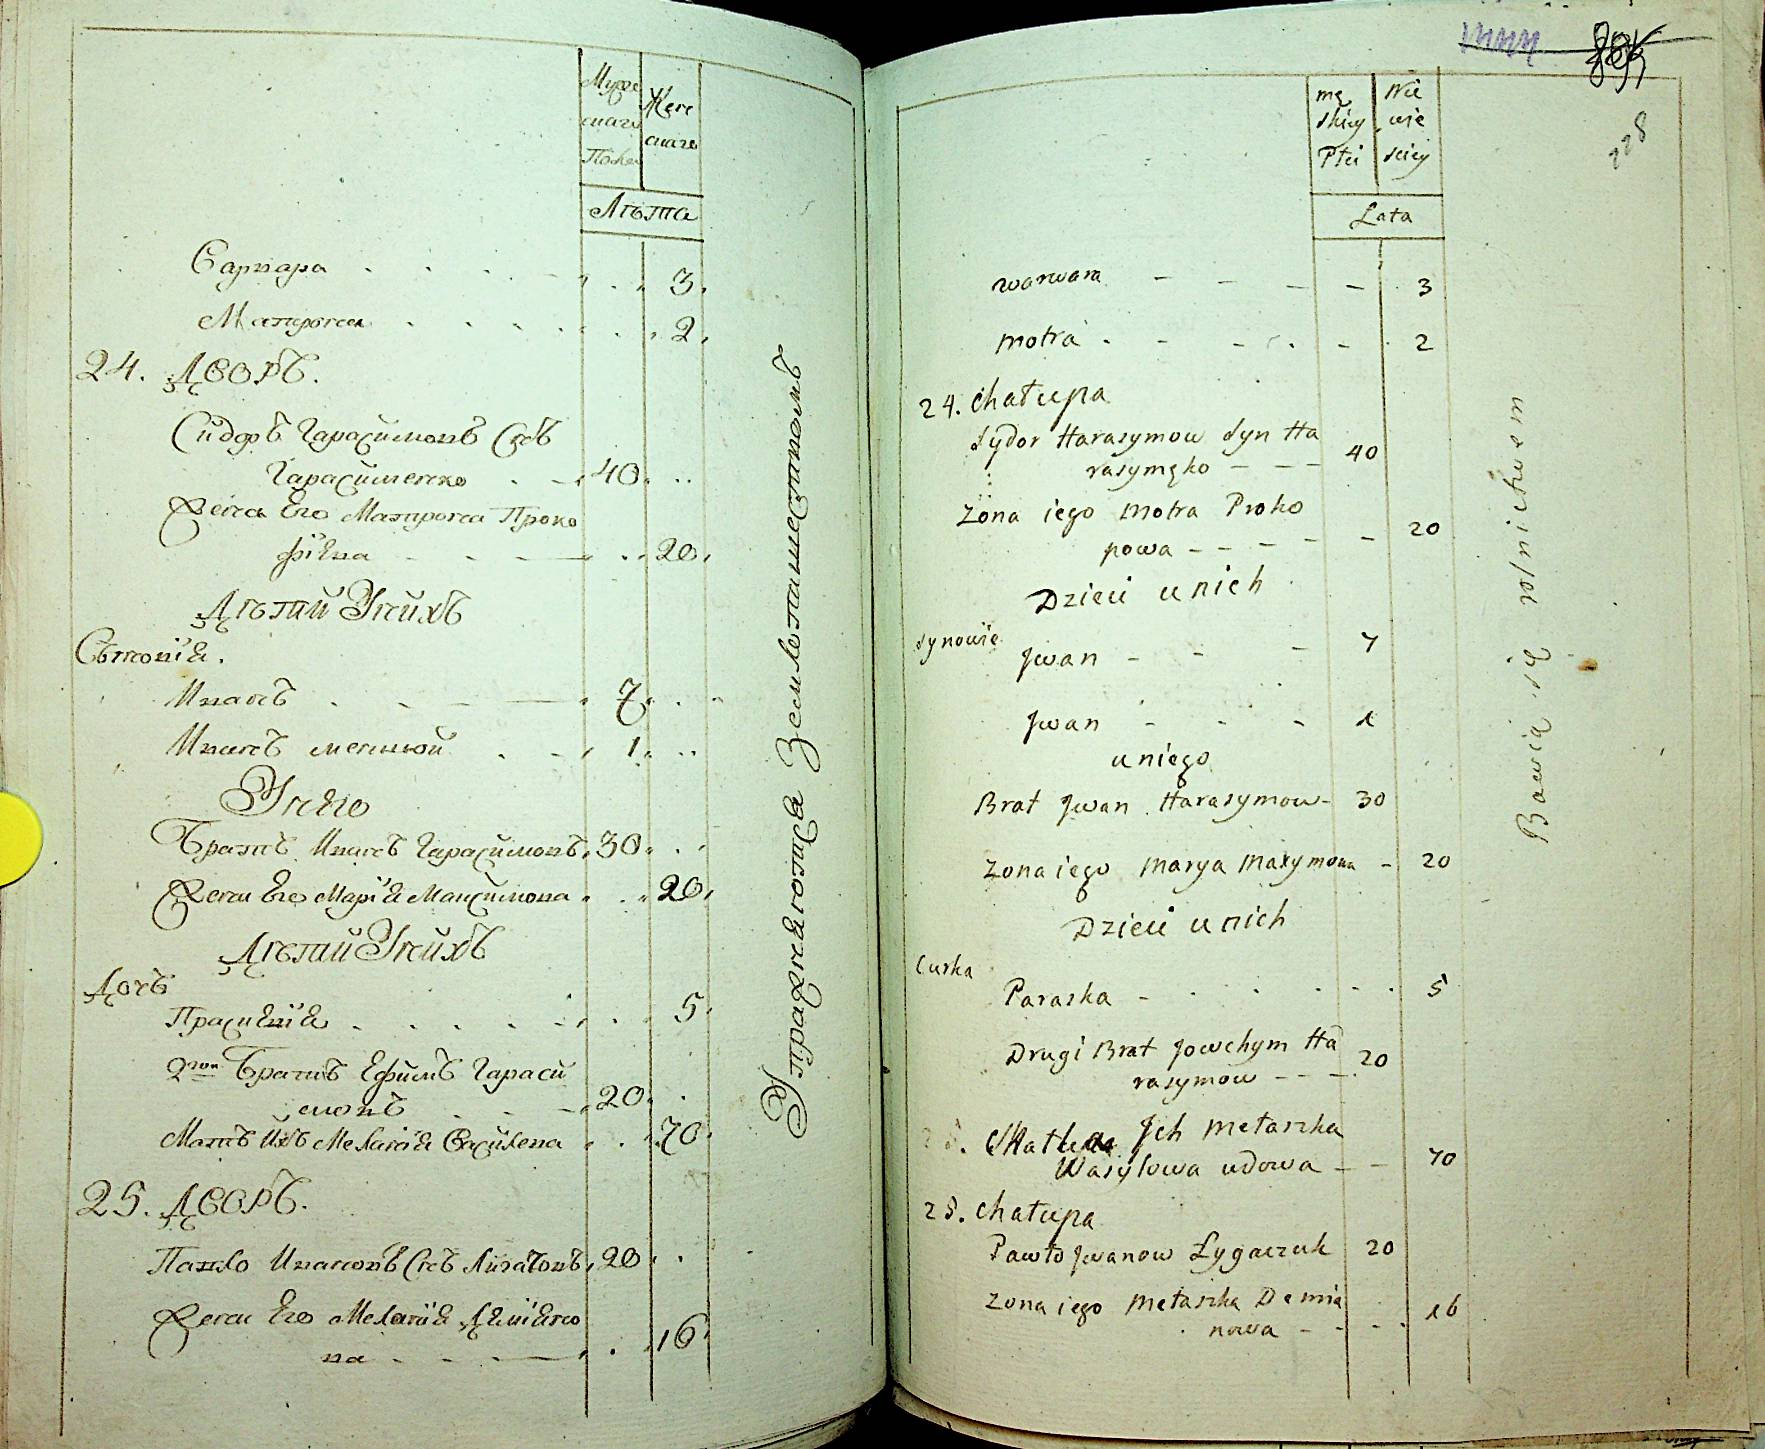 Муже
скаго
Пола
Жен
скаго
Лѣта
Варвара 3.
Мотрона 2.
24. Дворъ.
Сидоръ Гарасимовъ Снъ
Гарасименко 40.
Жена Его Мотрона Проко
фіева 20.
Дѣти У нихъ
Сыновія.
Иванъ 7.
Иванъ меньшой 1.
У него
Братъ Иванъ Гарасимовъ 30.
Жена Его Марія Максимова 20.
Дѣти У нихъ
Дочь
Прасковія 5.
2гой Братъ Ефимъ Гараси
мовъ 20.
Мать Ихъ Меланія Василева 70.
25. Дворъ.
Павло Ивановъ Снъ 20
Жена Его Меланія Деміяно
ва 16
Упражняются Землепашествомъ
mę
skiey
Płci
Nie
wie
sciey
Lata
228
warwara - - - - 3
motra - - - 2
24. Chałupa
Sydor Harasymow Syn Ha
rasymęko - - - 40
Żona iego Motra Proko
powa - - - - - 20
Dzieci u nich
Synowie
Jwan - - - 7
Jwan - - - 1
u niego
Brat Jwan Harasymow - 30
Żona iego Marya Maxymowa - 20
Dzieci u nich
Curka
Paraska - 5
Drugi Brat Jowchym Ha
rasymow - - - 20
Matka Jch Metaszka
Wasylowa udowa - - 70
25. Chałupa
Pawło Jwanow Łygaczuk 20
Żona iego Metaszka Demia
nowa - - - - 16
Bawią się rolnictwem